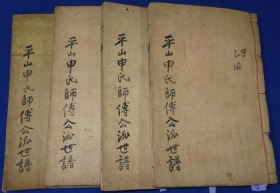 平山申氏師傅公派世譜
平山申氏師傅公派世譜
平山申氏師傅公派世譜
平山申氏師傅公派世譜